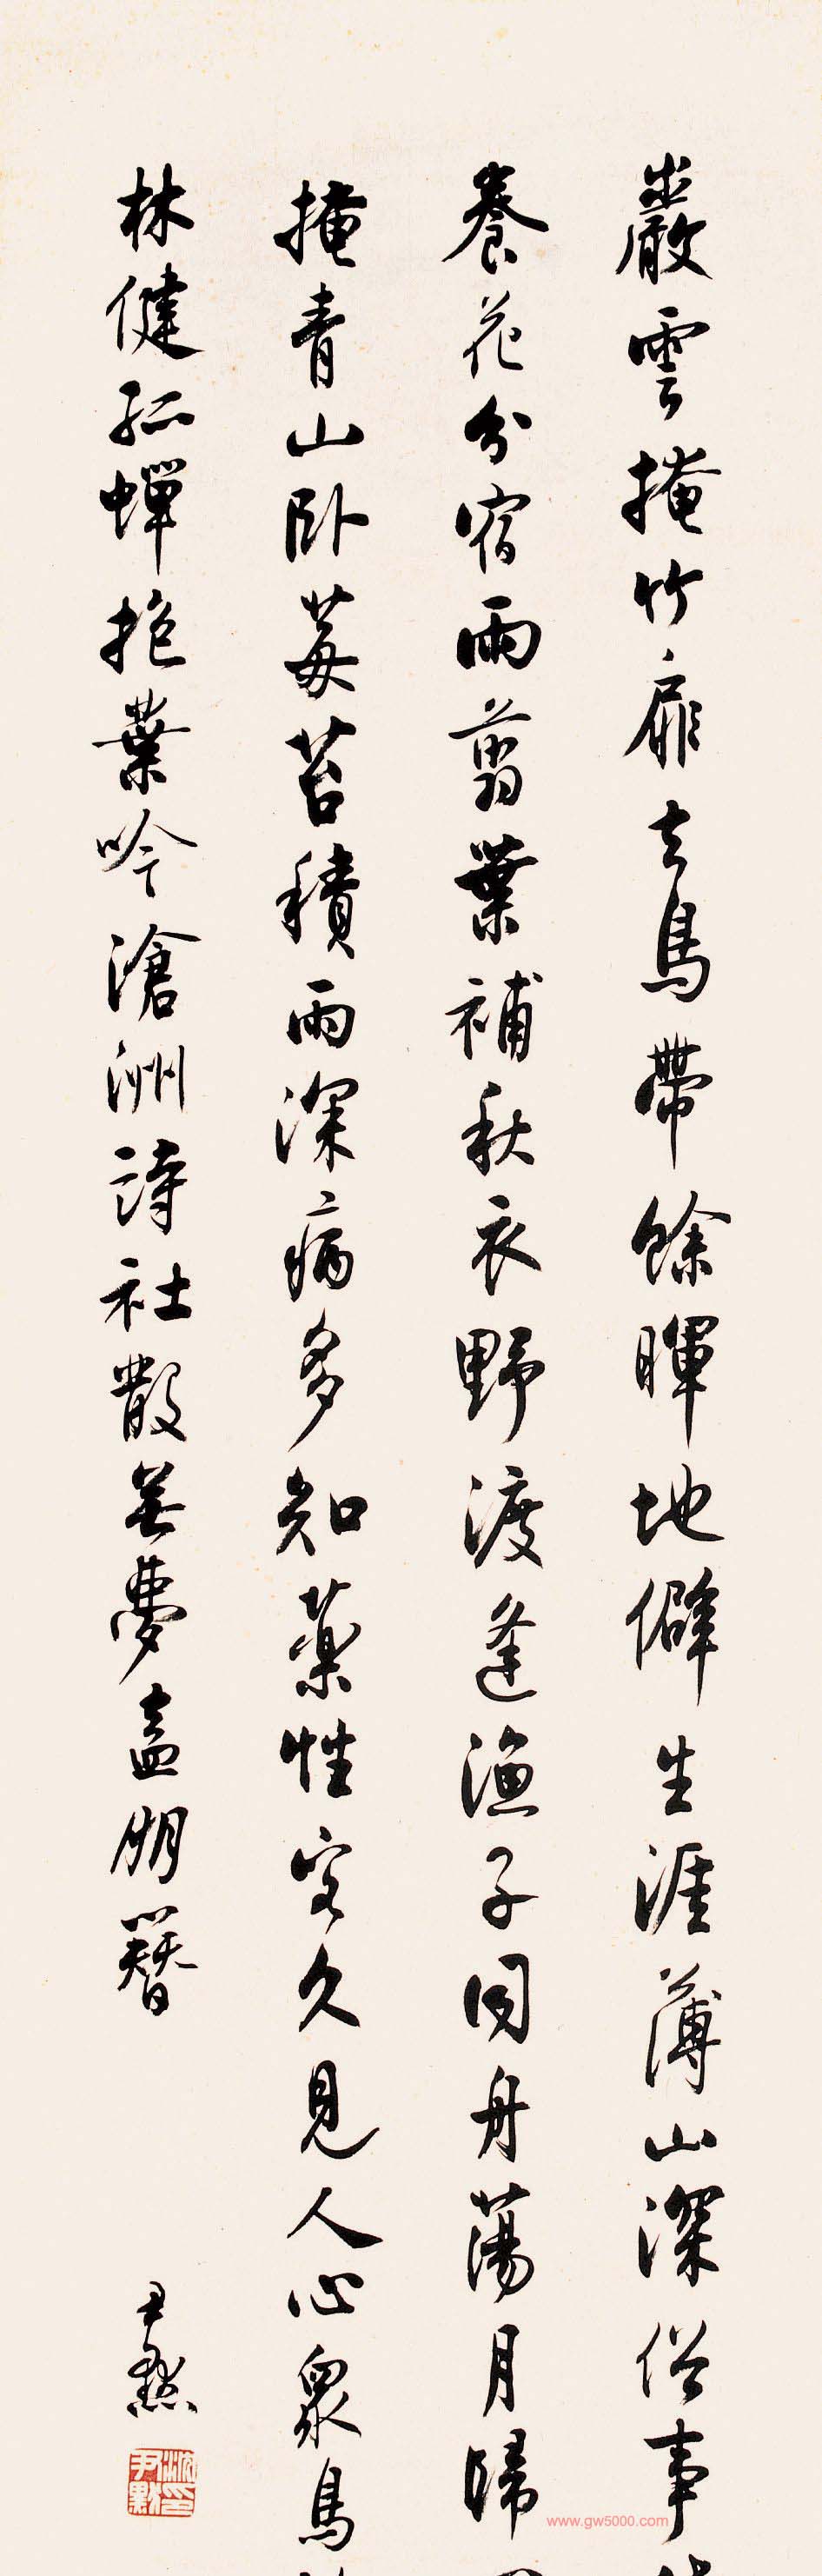 巖雲掩竹扉去鳥帶餘暉地僻生涯薄山深俗事
養花分宿雨翦葉補秋衣野渡逢漁子同舟蕩月歸
掩青山臥莓苔積雨深病多知藥性客久見人心眾鳥
林健孤蟬抱葉吟滄洲詩社散無夢盍朋簪
尹默
沈尹默印
www.gw5000.com